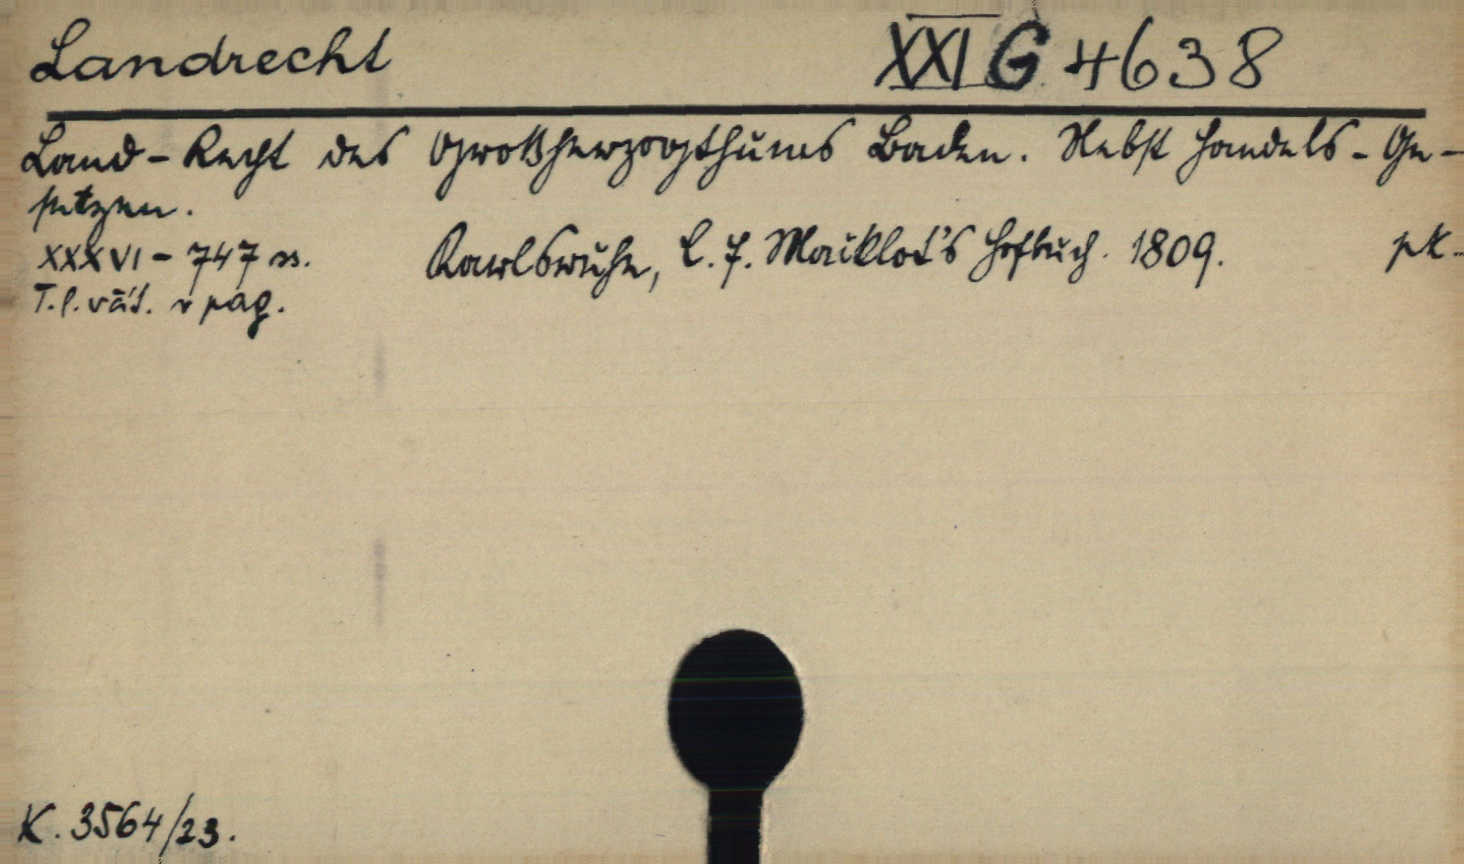 Landrecht XXI G 4638
Land-Recht des Großherzogthums Baden. Nebst Handels-Ge-
setzen.
XXXVI - 747 ss. Karlsruhe, C. F. Macklot's Hofbuch. 1809. pk.
T. l. váz. v pag.
K. 3564/23.